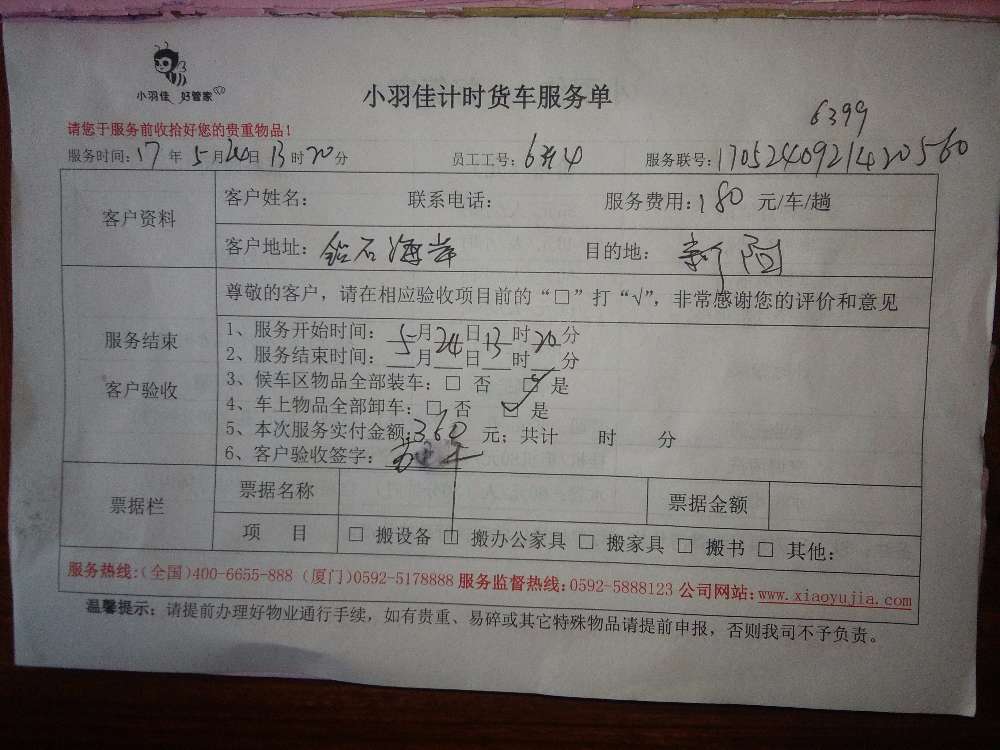 小羽佳 好管家
小羽佳计时货车服务单
6399
请您于服务前收拾好您的贵重物品!
服务时间: 17 年 5 月 24 日 13 时 20 分 员工工号: 服务联号: 170524092142 0560
客户资料
客户姓名: 联系电话: 服务费用: 180 元/车/趟
客户地址: 钻石海岸 目的地: 新阳
服务结束
客户验收
尊敬的客户，请在相应验收项目前的“□”打“√”，非常感谢您的评价和意见
1、服务开始时间: 5 月 24 日 13 时 20 分
2、服务结束时间: ___月___日___时___分
3、候车区物品全部装车: □ 否 □ 是
4、车上物品全部卸车: □ 否 □ 是
5、本次服务实付金额: 360 元; 共计 时 分
6、客户验收签字:
票据栏
票据名称 票据金额
项 目 □ 搬设备 □ 搬办公家具 □ 搬家具 □ 搬书 □ 其他:
服务热线:(全国)400-6655-888 (厦门)0592-5178888 服务监督热线:0592-5888123 公司网站:www.xiaoyujia.com
温馨提示: 请提前办理好物业通行手续，如有贵重、易碎或其它特殊物品请提前申报，否则我司不予负责。